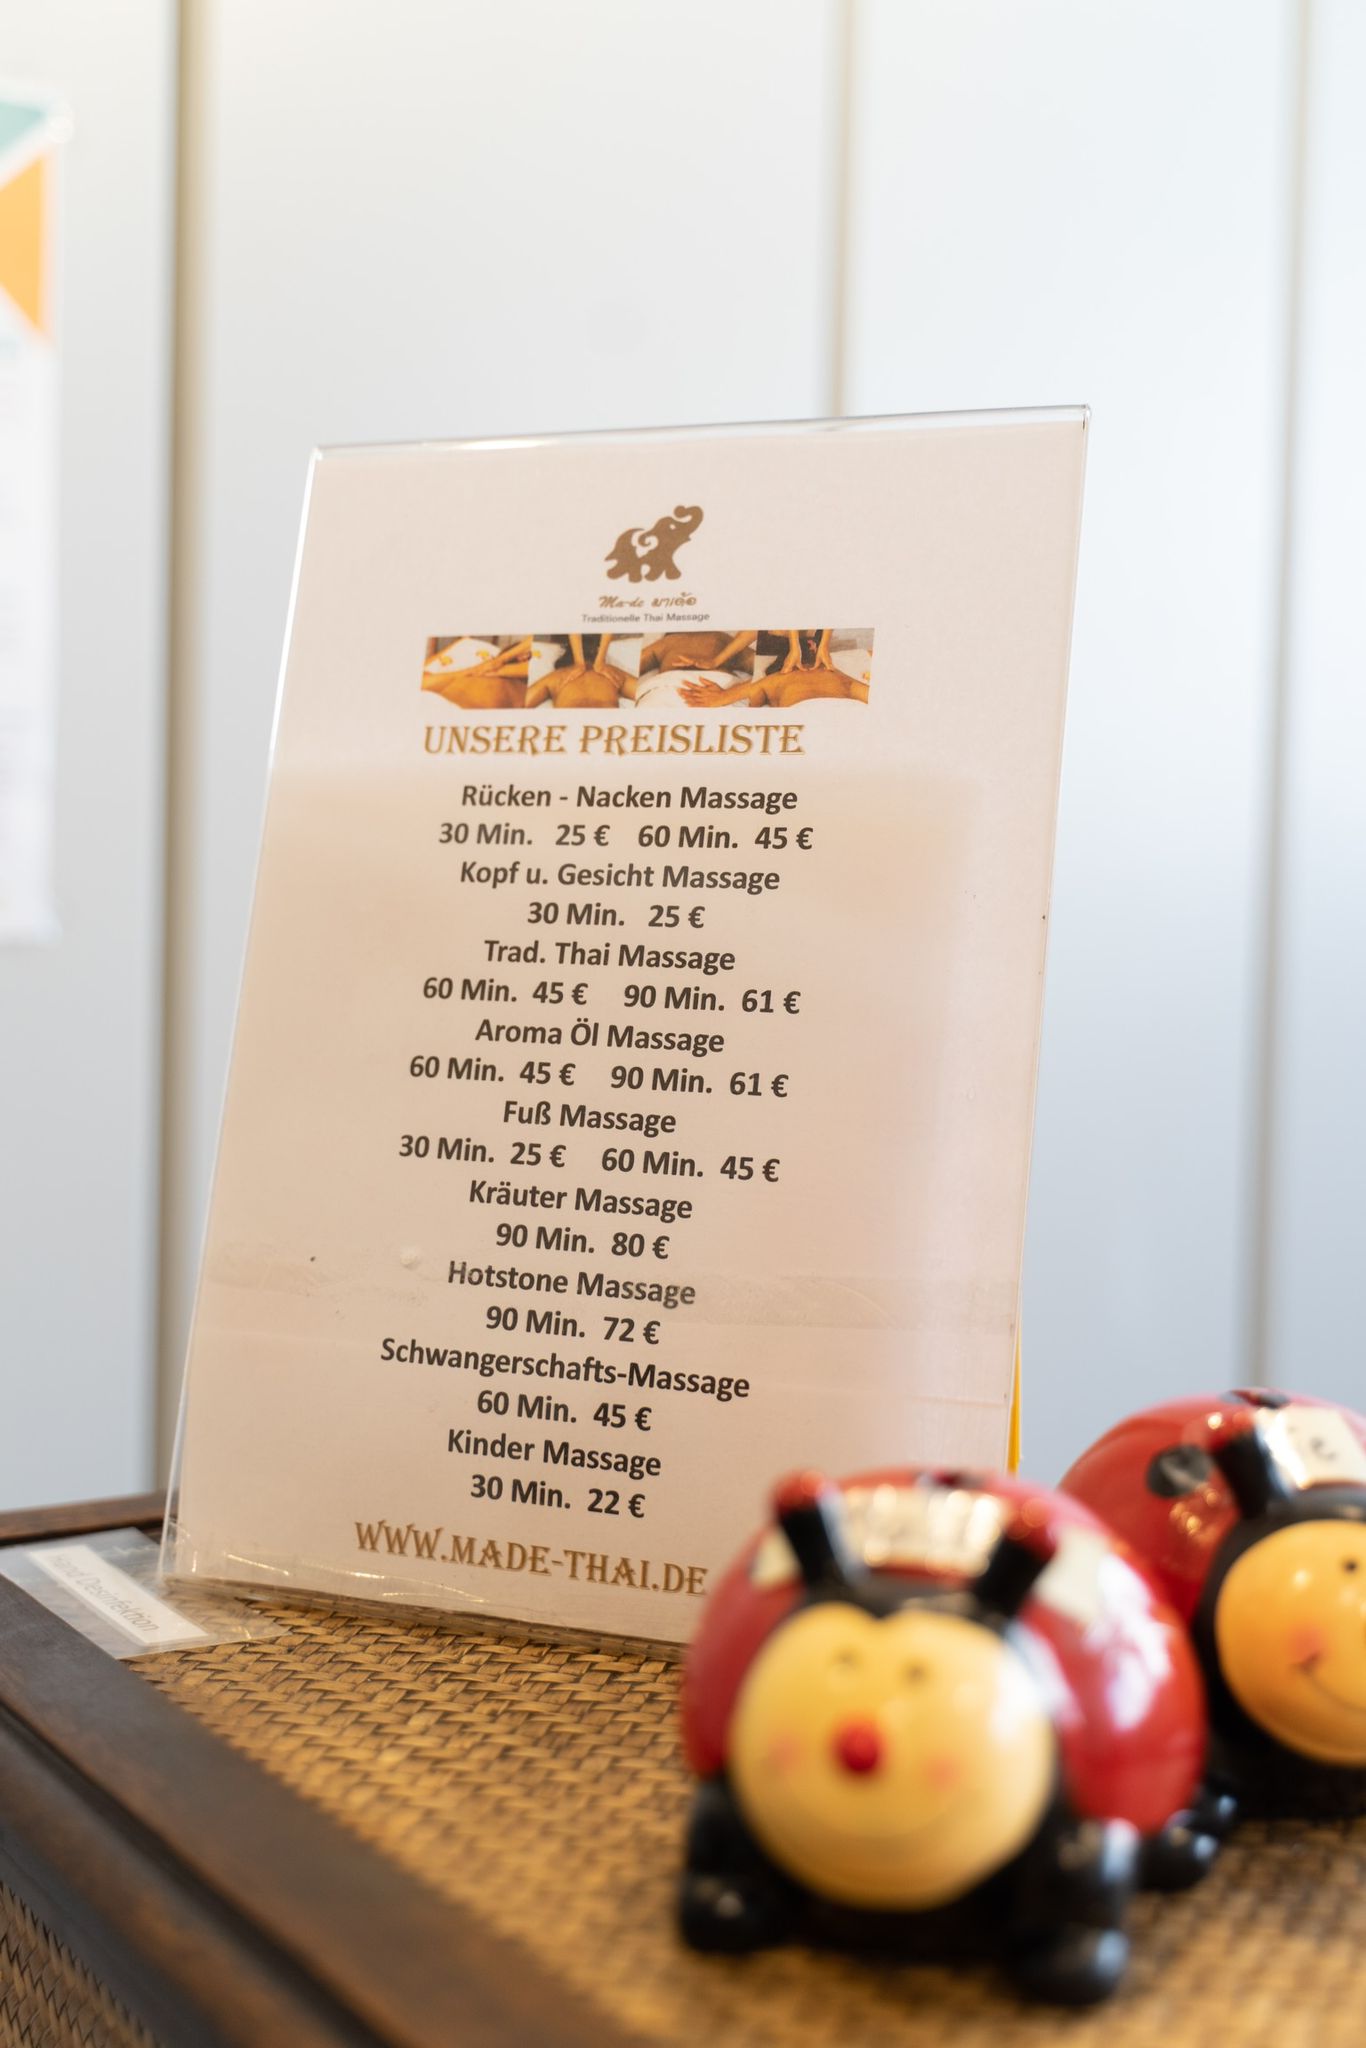 Ma-de มาเด้อ
Traditionelle Thai Massage
UNSERE PREISLISTE
Rücken - Nacken Massage
30 Min. 25 € 60 Min. 45 €
Kopf u. Gesicht Massage
30 Min. 25 €
Trad. Thai Massage
60 Min. 45 € 90 Min. 61 €
Aroma Öl Massage
60 Min. 45 € 90 Min. 61 €
Fuß Massage
30 Min. 25 € 60 Min. 45 €
Kräuter Massage
90 Min. 80 €
Hotstone Massage
90 Min. 72 €
Schwangerschafts-Massage
60 Min. 45 €
Kinder Massage
30 Min. 22 €
WWW.MADE-THAI.DE
Hand Desinfektion